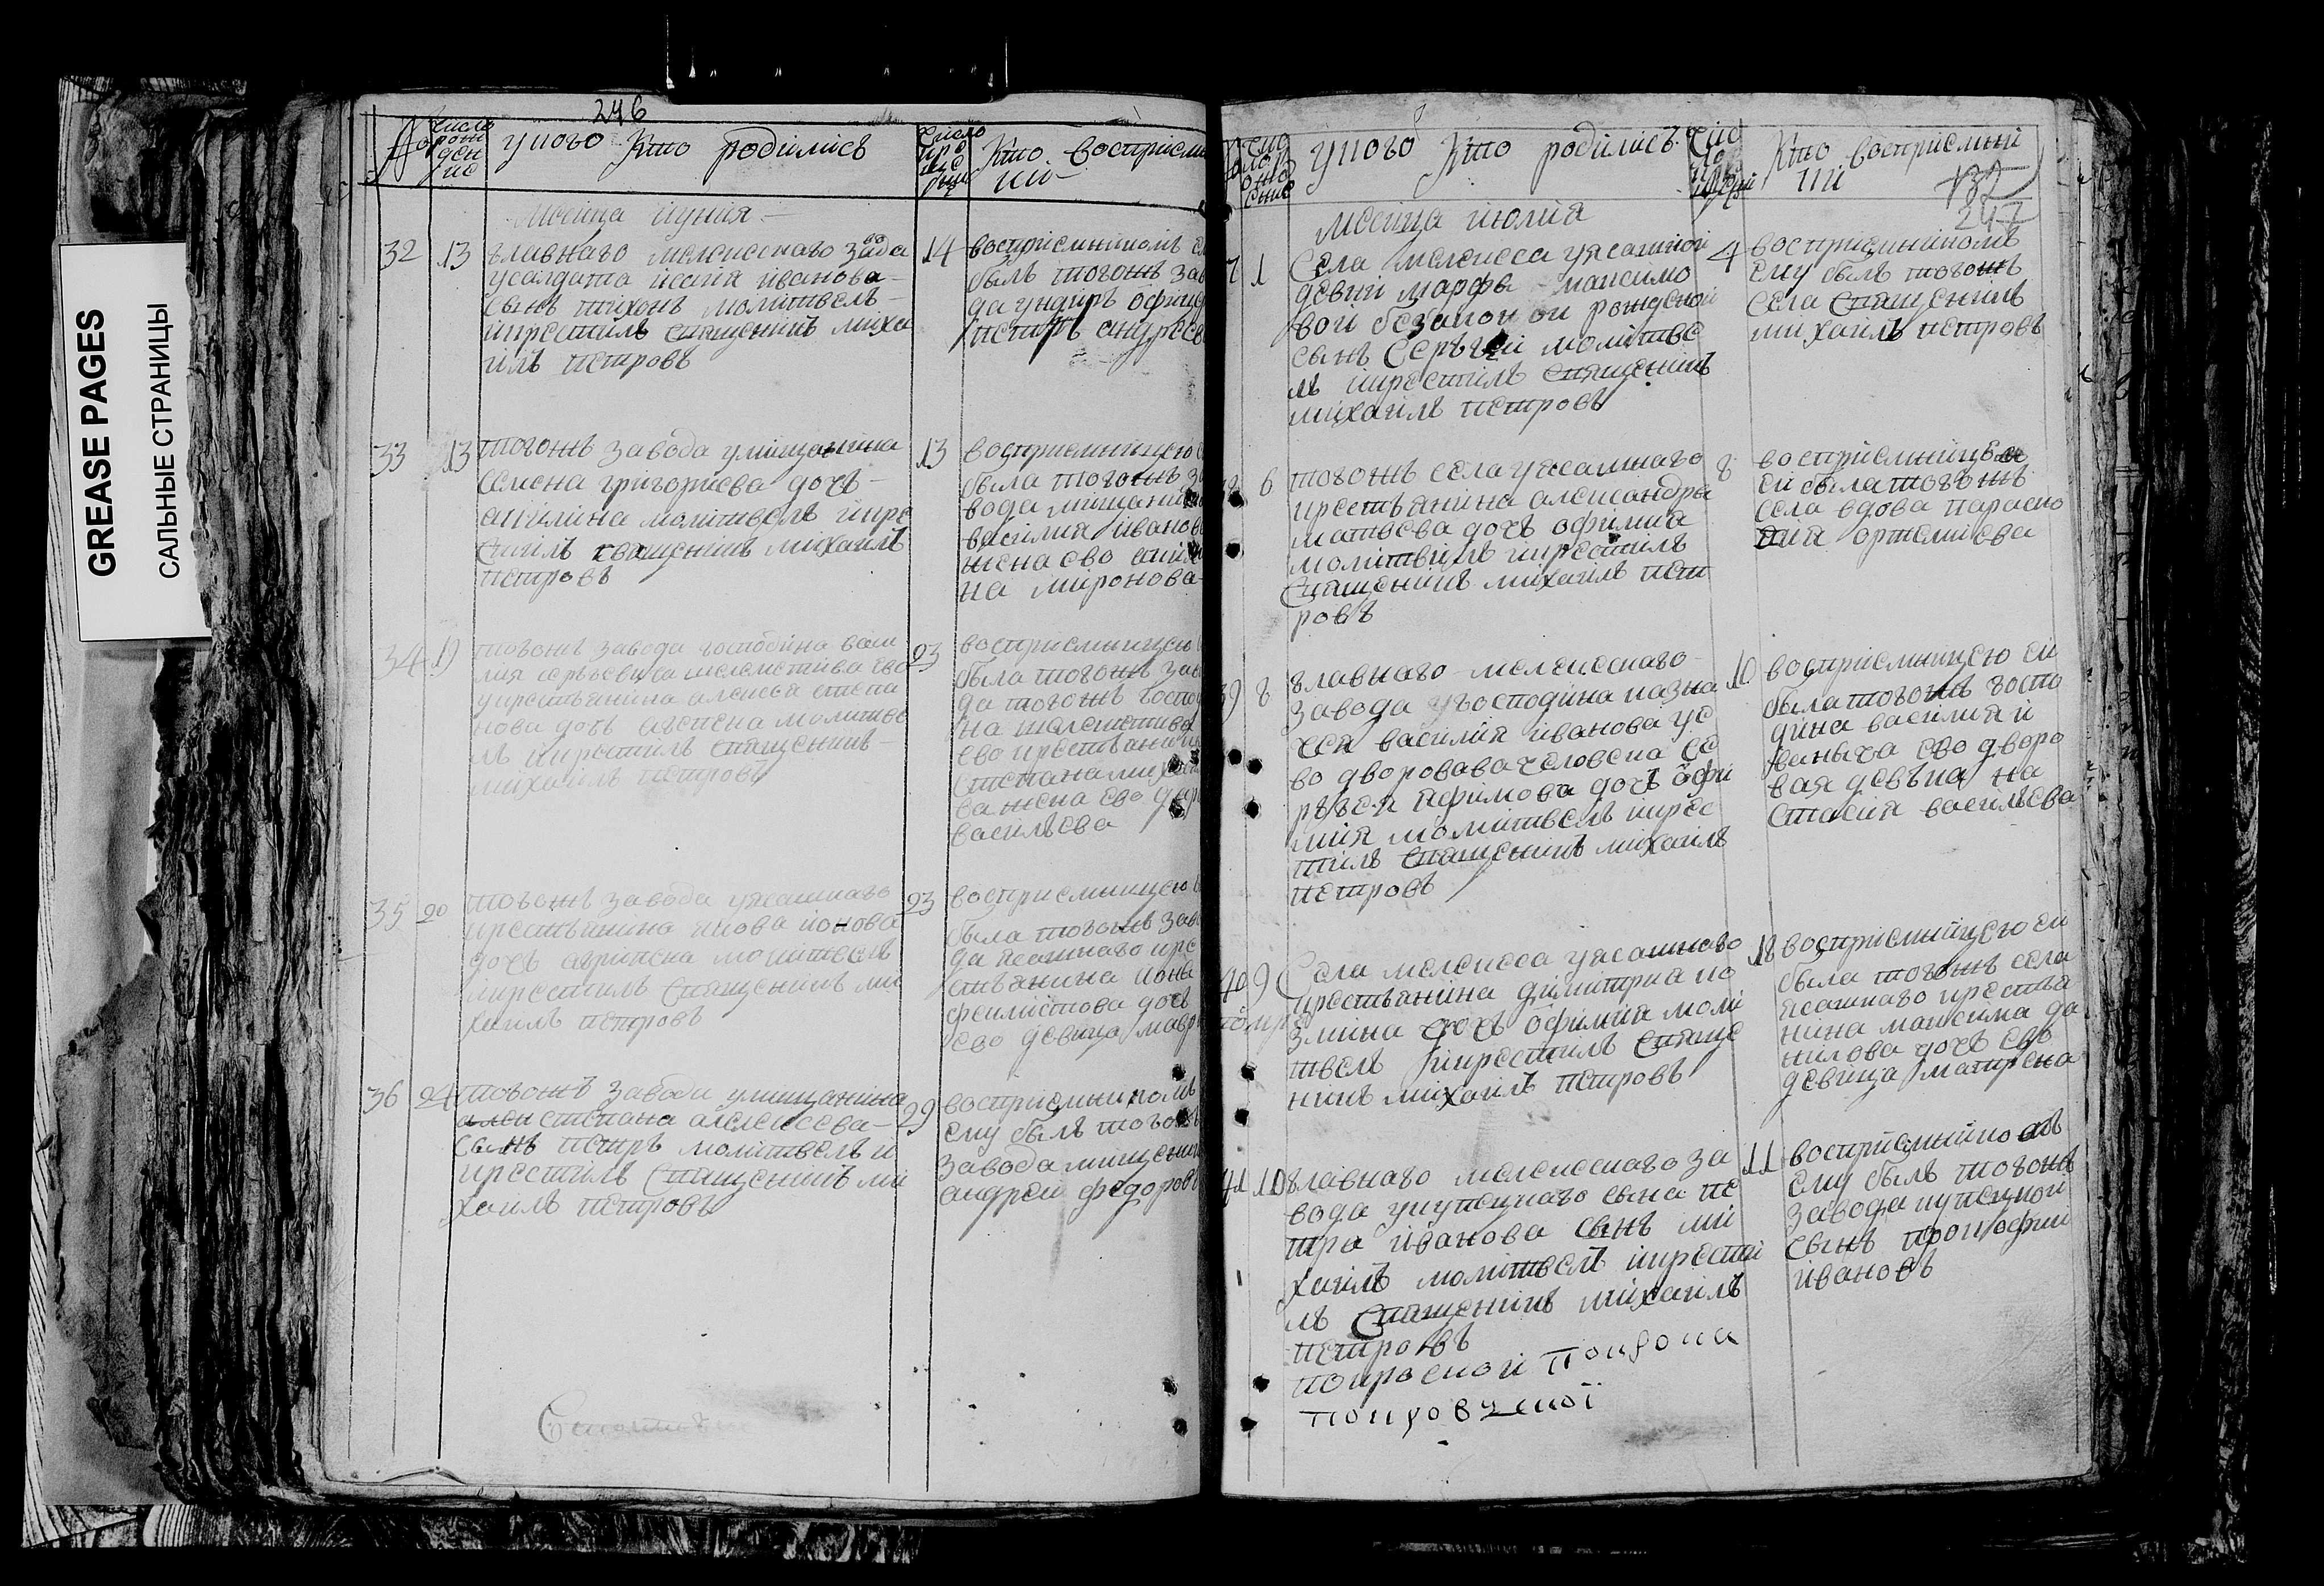 GREASE PAGES
САЛЬНЫЕ СТРАНИЦЫ
246
№
число рождение
укого Кто родились
число крещ
Кто восприемни
ки
месяца иуния
32
13
главнаго мелекесскаго завода
усалдата исаия иванова
сынъ тихонъ молитвелъ
икрестилъ священникъ миха
илъ петровъ
14
восприемникомъ
былъ тогожъ зав
да ундеръ офице
петръ андреев
33
13
тогожъ завода умищанина
семена григориева дочь
акилина молитвелъ икре
стилъ священникъ михаилъ
петровъ
13
восприемницею
была тогожъ за
вода мищанина
василия иванов
жена ево
на миронова
34
19
тогожъ завода господина васи
лия
укрестьянина алексея степа
нова дочь агрепена молитве
лъ икрестилъ священникъ
михаилъ петровъ
23
восприемницею
была тогожъ заво
да тогожъ господи
на
ево крестьянина
степана михаи
ва жена ево
васильева
35
20
тогожъ завода уясашнаго
крестьянина иова ионова
дочь агрипена молитвелъ
икрестилъ священникъ ми
хаилъ петровъ
23
восприемницею
была тогожъ заво
да ясашнаго кре
стьянина ионы
феклистова дочь
ево девица мавр
36
24
тогожъ завода умищанина
степана алексеева
сынъ петръ молитвелъ и
крестилъ священникъ ми
хаилъ петровъ
29
восприемникомъ
ему былъ тогожъ
завода мищенин
андрей федоровъ
укого Кто родились
Кто восприемни
ки
132
247
месяца июлия
7
1
Села мелекесса уясашной
девки марфы максимо
вой безаконой рожденой
сынъ Серьгей молитве
лъ икрестилъ священникъ
михаилъ петровъ
4
восприемникомъ
ему былъ тогожъ
села священникъ
михаилъ петровъ
6
тогожъ села уясашнаго
крестьянина александра
матвеева дочь офимия
молитвилъ икрестилъ
священникъ михаилъ пет
ровъ
8
восприемницею
ей была тогожъ
села вдова параско
вия ортемиева
39
8
главнаго мелекесскаго
завода угосподина казна
чея василия иванова ус
во дворовава человека се
ргея ефимова дочь офи
мия молитвелъ икрес
тилъ священникъ михаилъ
петровъ
10
восприемницею ей
была тогожъ госпо
дина василия и
ваныча ево дворо
вая девъка на
стасия васильева
40
9
Села мелекесса уясашнаго
крестьянина димитриа ко
змина дочь офимия моли
твелъ икрестилъ свяще
никъ михаилъ петровъ
18
восприемницею ей
была тогожъ села
ясашнаго крестья
нина максима да
нилова дочь ево
девица матрена
41
10
главнаго мелекесскаго за
вода укупецкаго сына пе
тра иванова сынъ ми
хаилъ молитвелъ икрести
лъ священникъ михаилъ
петровъ
11
восприемникомъ
ему былъ тогожъ
завода купецкой
сынъ прокофий
ивановъ